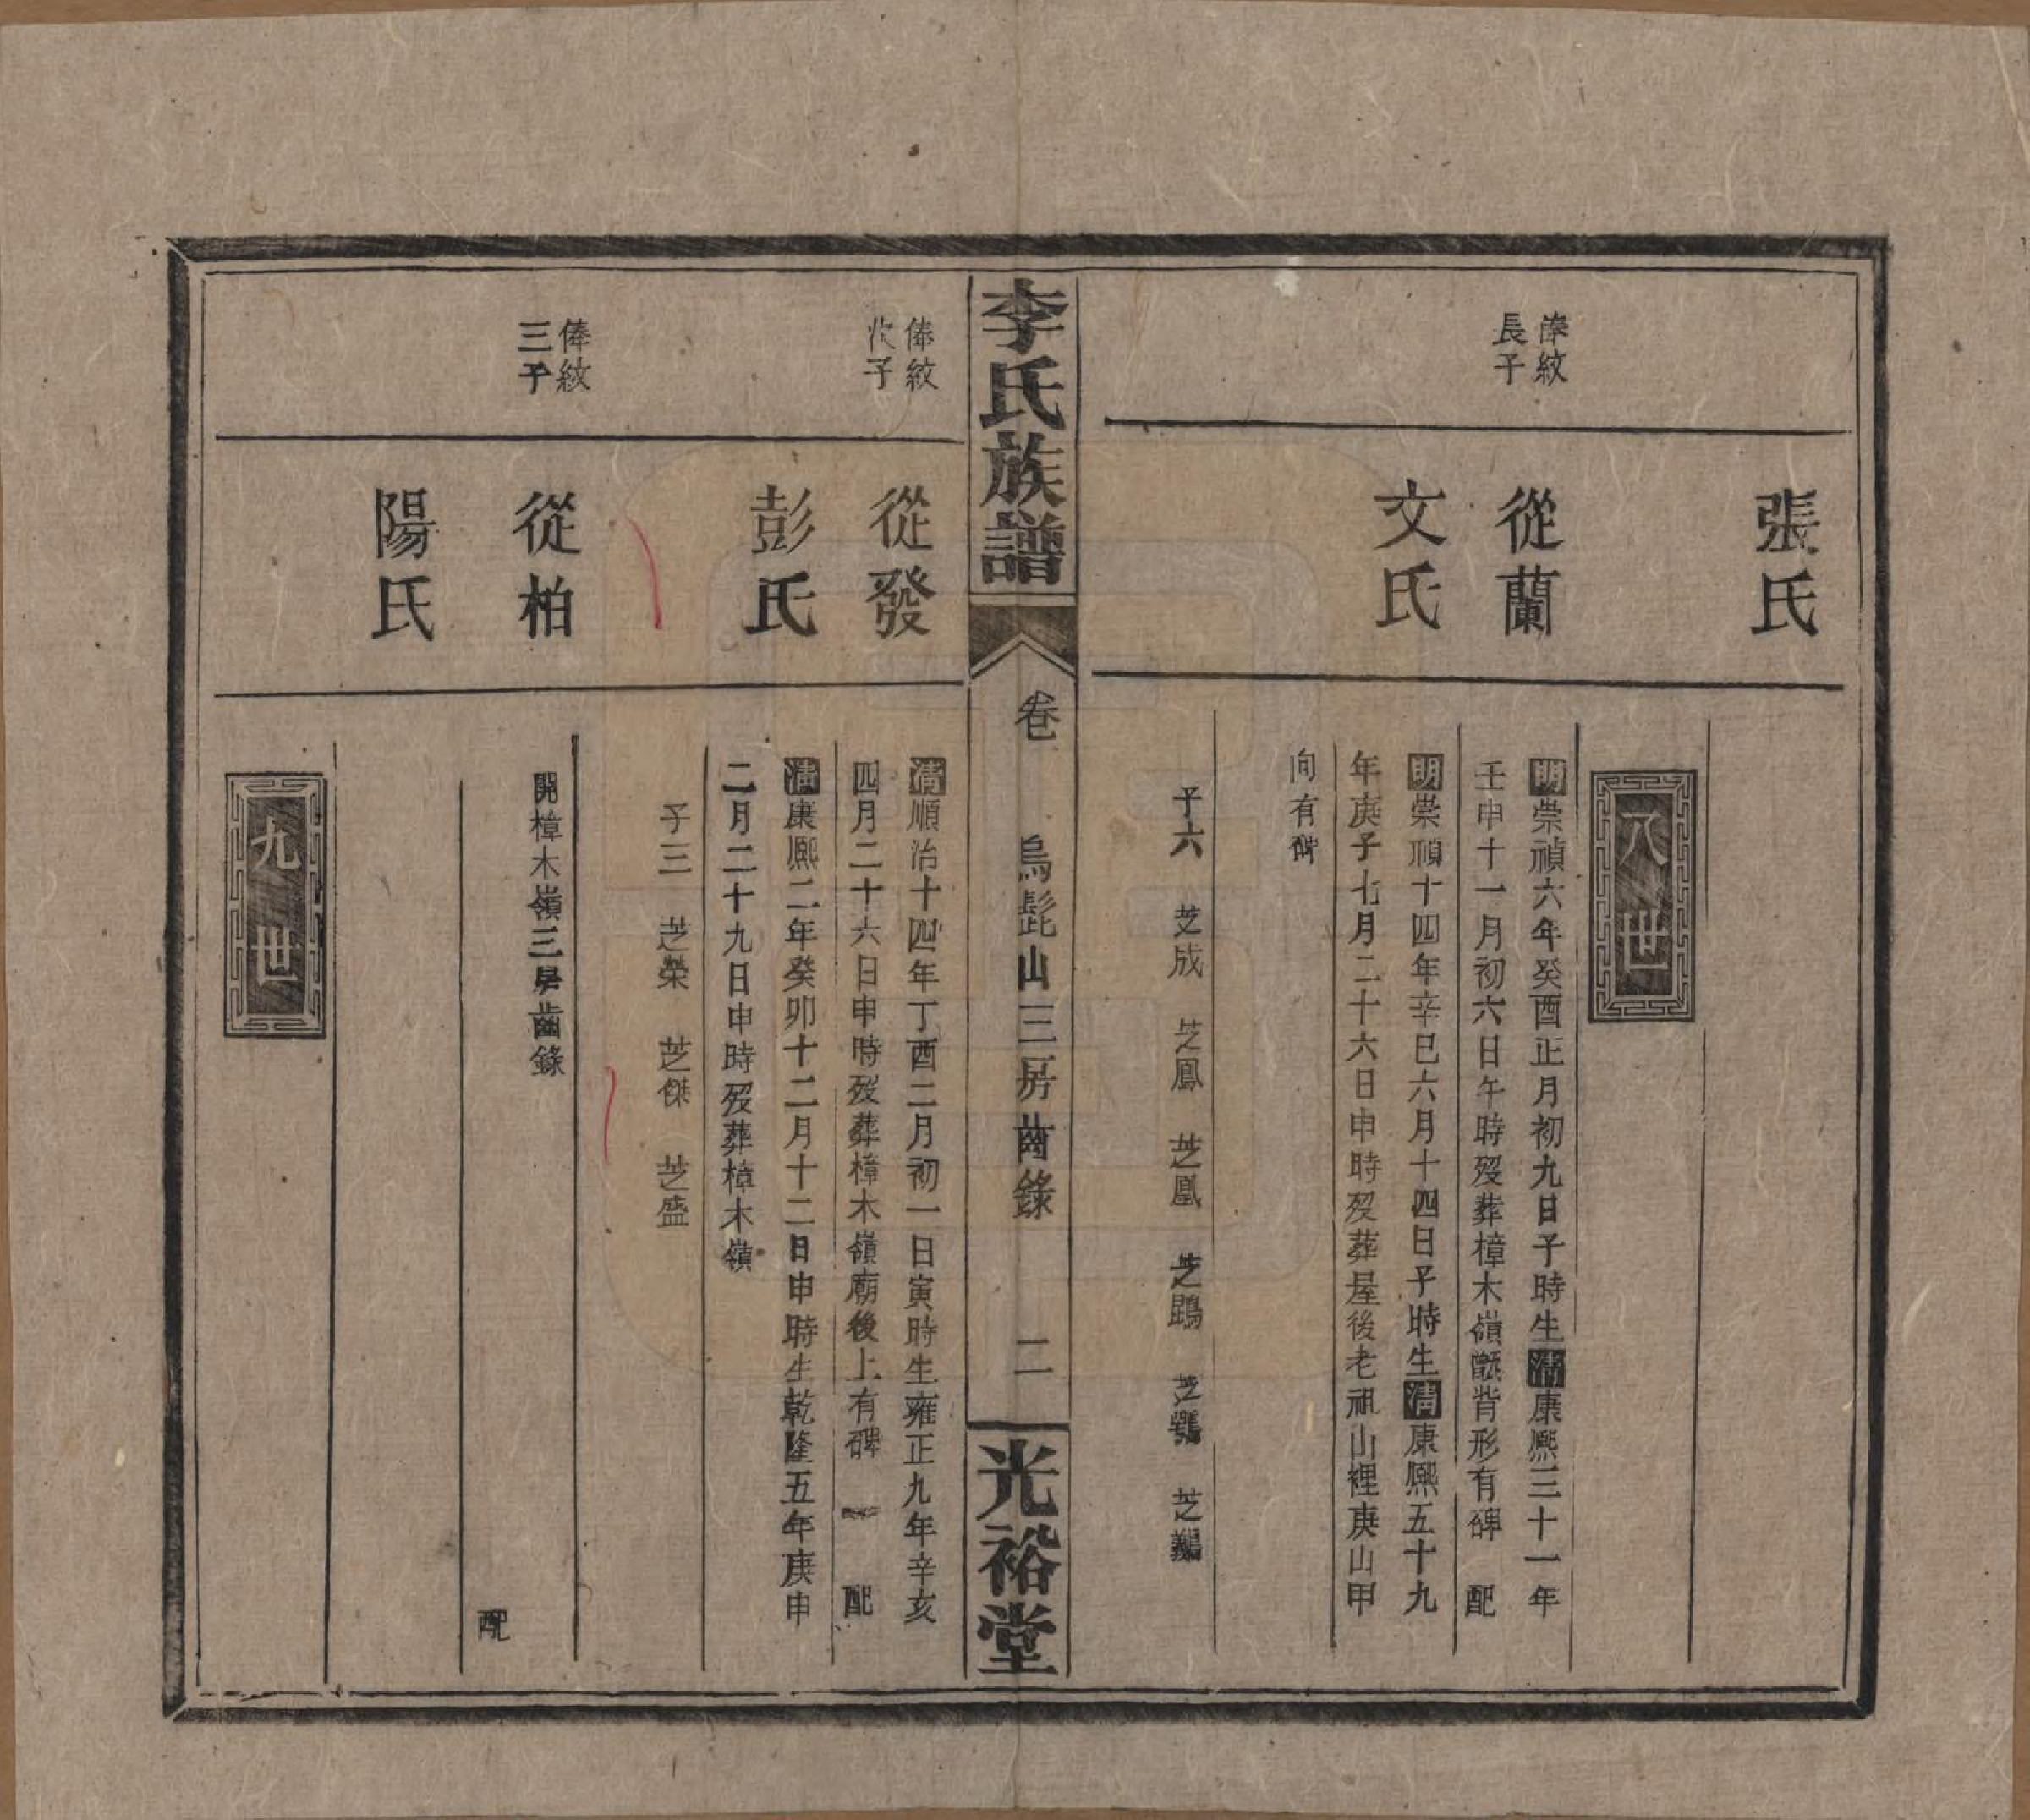 張氏
八世
俸紋
長子
從蘭
明崇禎六年癸酉正月初九日子時生清康熙三十一年
壬申十一月初六日午時歿葬樟木嶺甑背形有碑 配
文氏
明崇禎十四年辛巳六月十四日子時生清康熙五十九
年庚子七月二十六日申時歿葬屋後老祖山裡庚山甲
向有碑
子六 芝成 芝鳳 芝凰 芝鵾 芝鶚 芝
李氏族譜
卷 烏髭山三房齒錄 二
光裕堂
俸紋
次子
從發
清順治十四年丁酉二月初一日寅時生雍正九年辛亥
四月二十六日申時歿葬樟木嶺廟後上有碑 配
彭氏
清康熙二年癸卯十二月十二日申時生乾隆五年庚申
二月二十九日申時歿葬樟木嶺
子三 芝榮 芝傑 芝盛
俸紋
三子
從柏
開樟木嶺三房齒錄
配
陽氏
九世